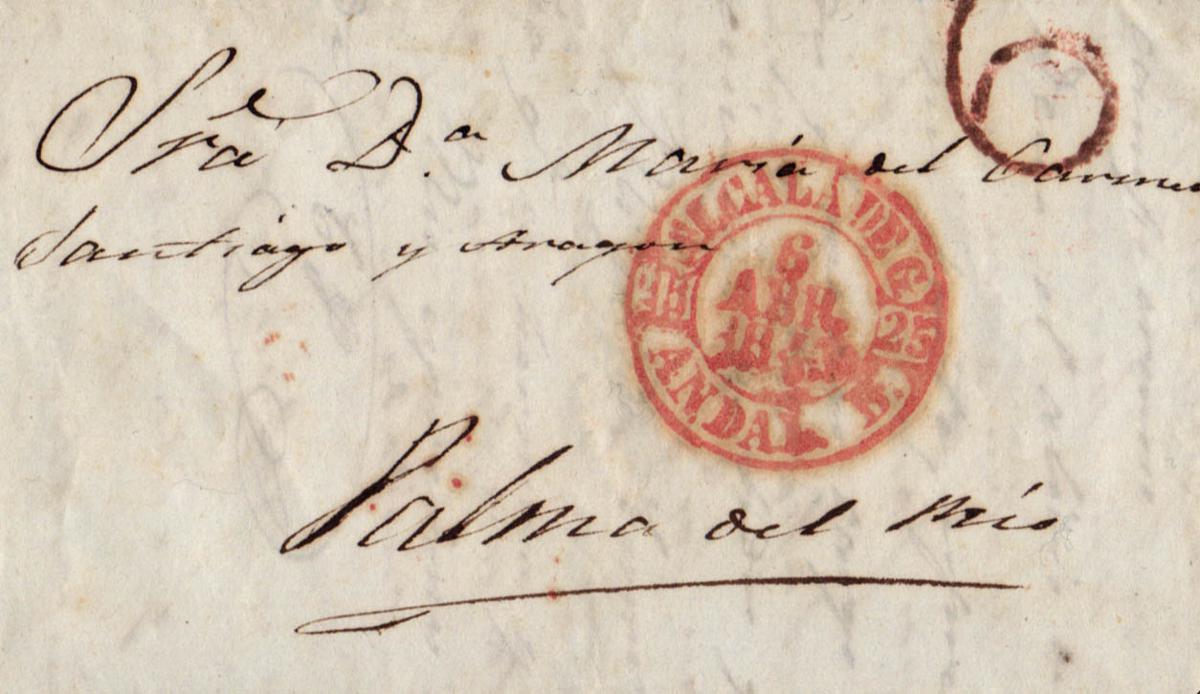 6
Sra D.ª Maria del Carmen
Santiago y Aragon
ALCALA DE G.
6
ABR.
25
ANDAL. B.
Palma del Rio